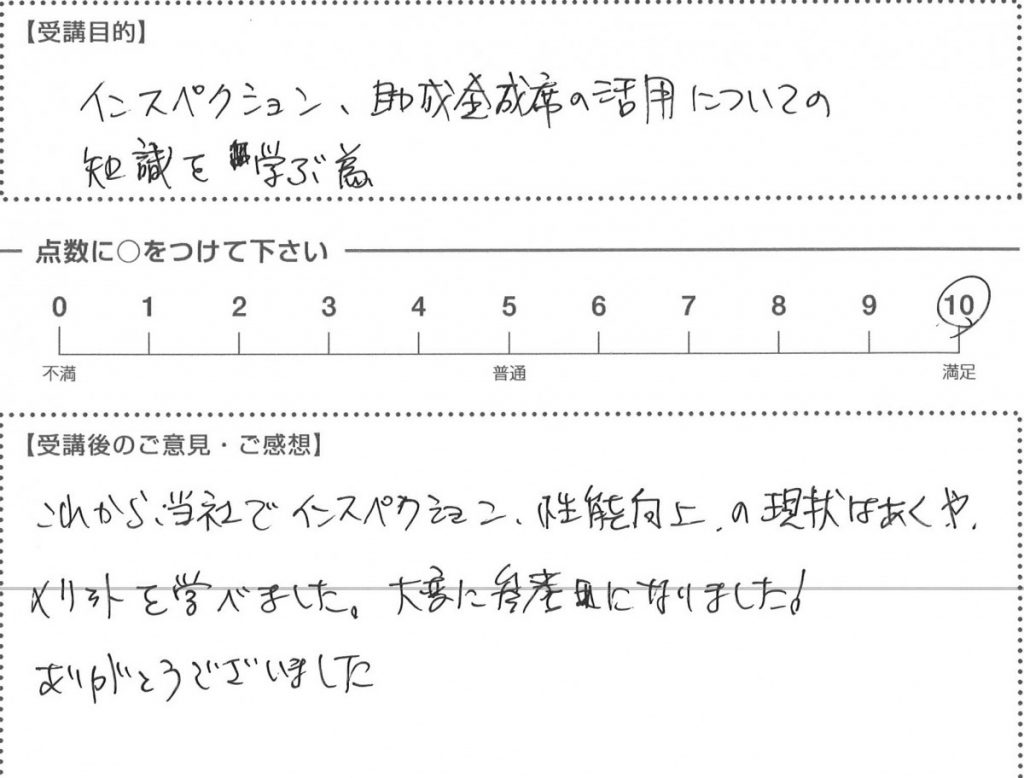 【受講目的】
インスペクション、助成金成席の活用についての
知識を学ぶ為
点数に○をつけて下さい
0 1 2 3 4 5 6 7 8 9 10
不満 普通 満足
【受講後のご意見・ご感想】
これから、当社でインスペクション、性能向上、の現状はあくや、
メリットを学べました。大変に参考になりました!
ありがとうございました